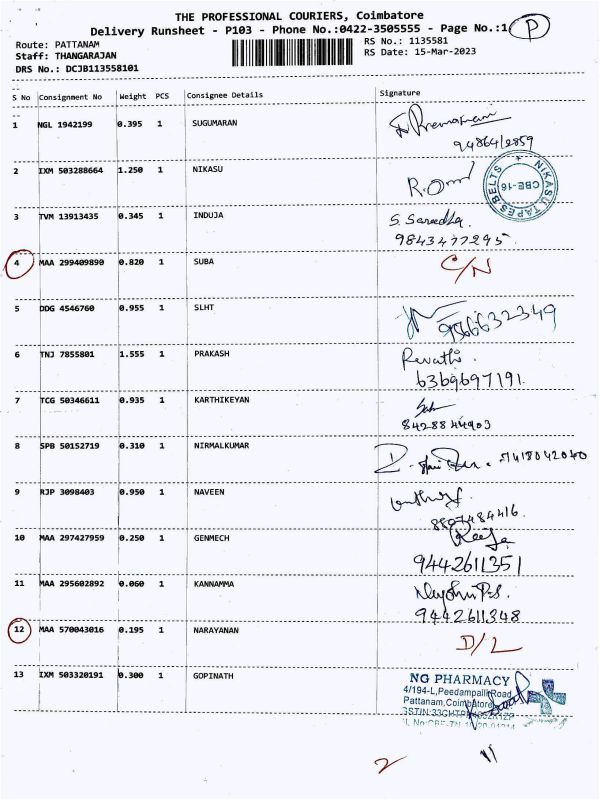 THE PROFESSIONAL COURIERS, Coimbatore
Delivery Runsheet - P103 - Phone No.:0422-3505555 - Page No.:1 P
Route: PATTANAM RS No.: 1135581
Staff: THANGARAJAN RS Date: 15-Mar-2023
DRS No.: DCJB113558101
S No Consignment No Weight PCS Consignee Details Signature
1 NGL 1942199 0.395 1 SUGUMARAN
9486412859
2 IXM 503288664 1.250 1 NIKASU
NIKASU TAPES-BELTS CBE-16
3 TVM 13913435 0.345 1 INDUJA S. Saradha
9843477295
4 MAA 299409890 0.820 1 SUBA C/N
5 DDG 4546760 0.955 1 SLHT
9566632349
6 TNJ 7855801 1.555 1 PRAKASH Revathi
6369697191
7 TCG 50346611 0.935 1 KARTHIKEYAN
8428844903
8 SPB 50152719 0.310 1 NIRMALKUMAR
9 RJP 3098403 0.950 1 NAVEEN
8807484416
10 MAA 297427959 0.250 1 GENMECH
9442611351
11 MAA 295602892 0.060 1 KANNAMMA
9442611348
12 MAA 570043016 0.195 1 NARAYANAN D/L
13 IXM 503320191 0.300 1 GOPINATH
NG PHARMACY
4/194-L,Peedampalli Road
Pattanam,Coimbatore
2 11